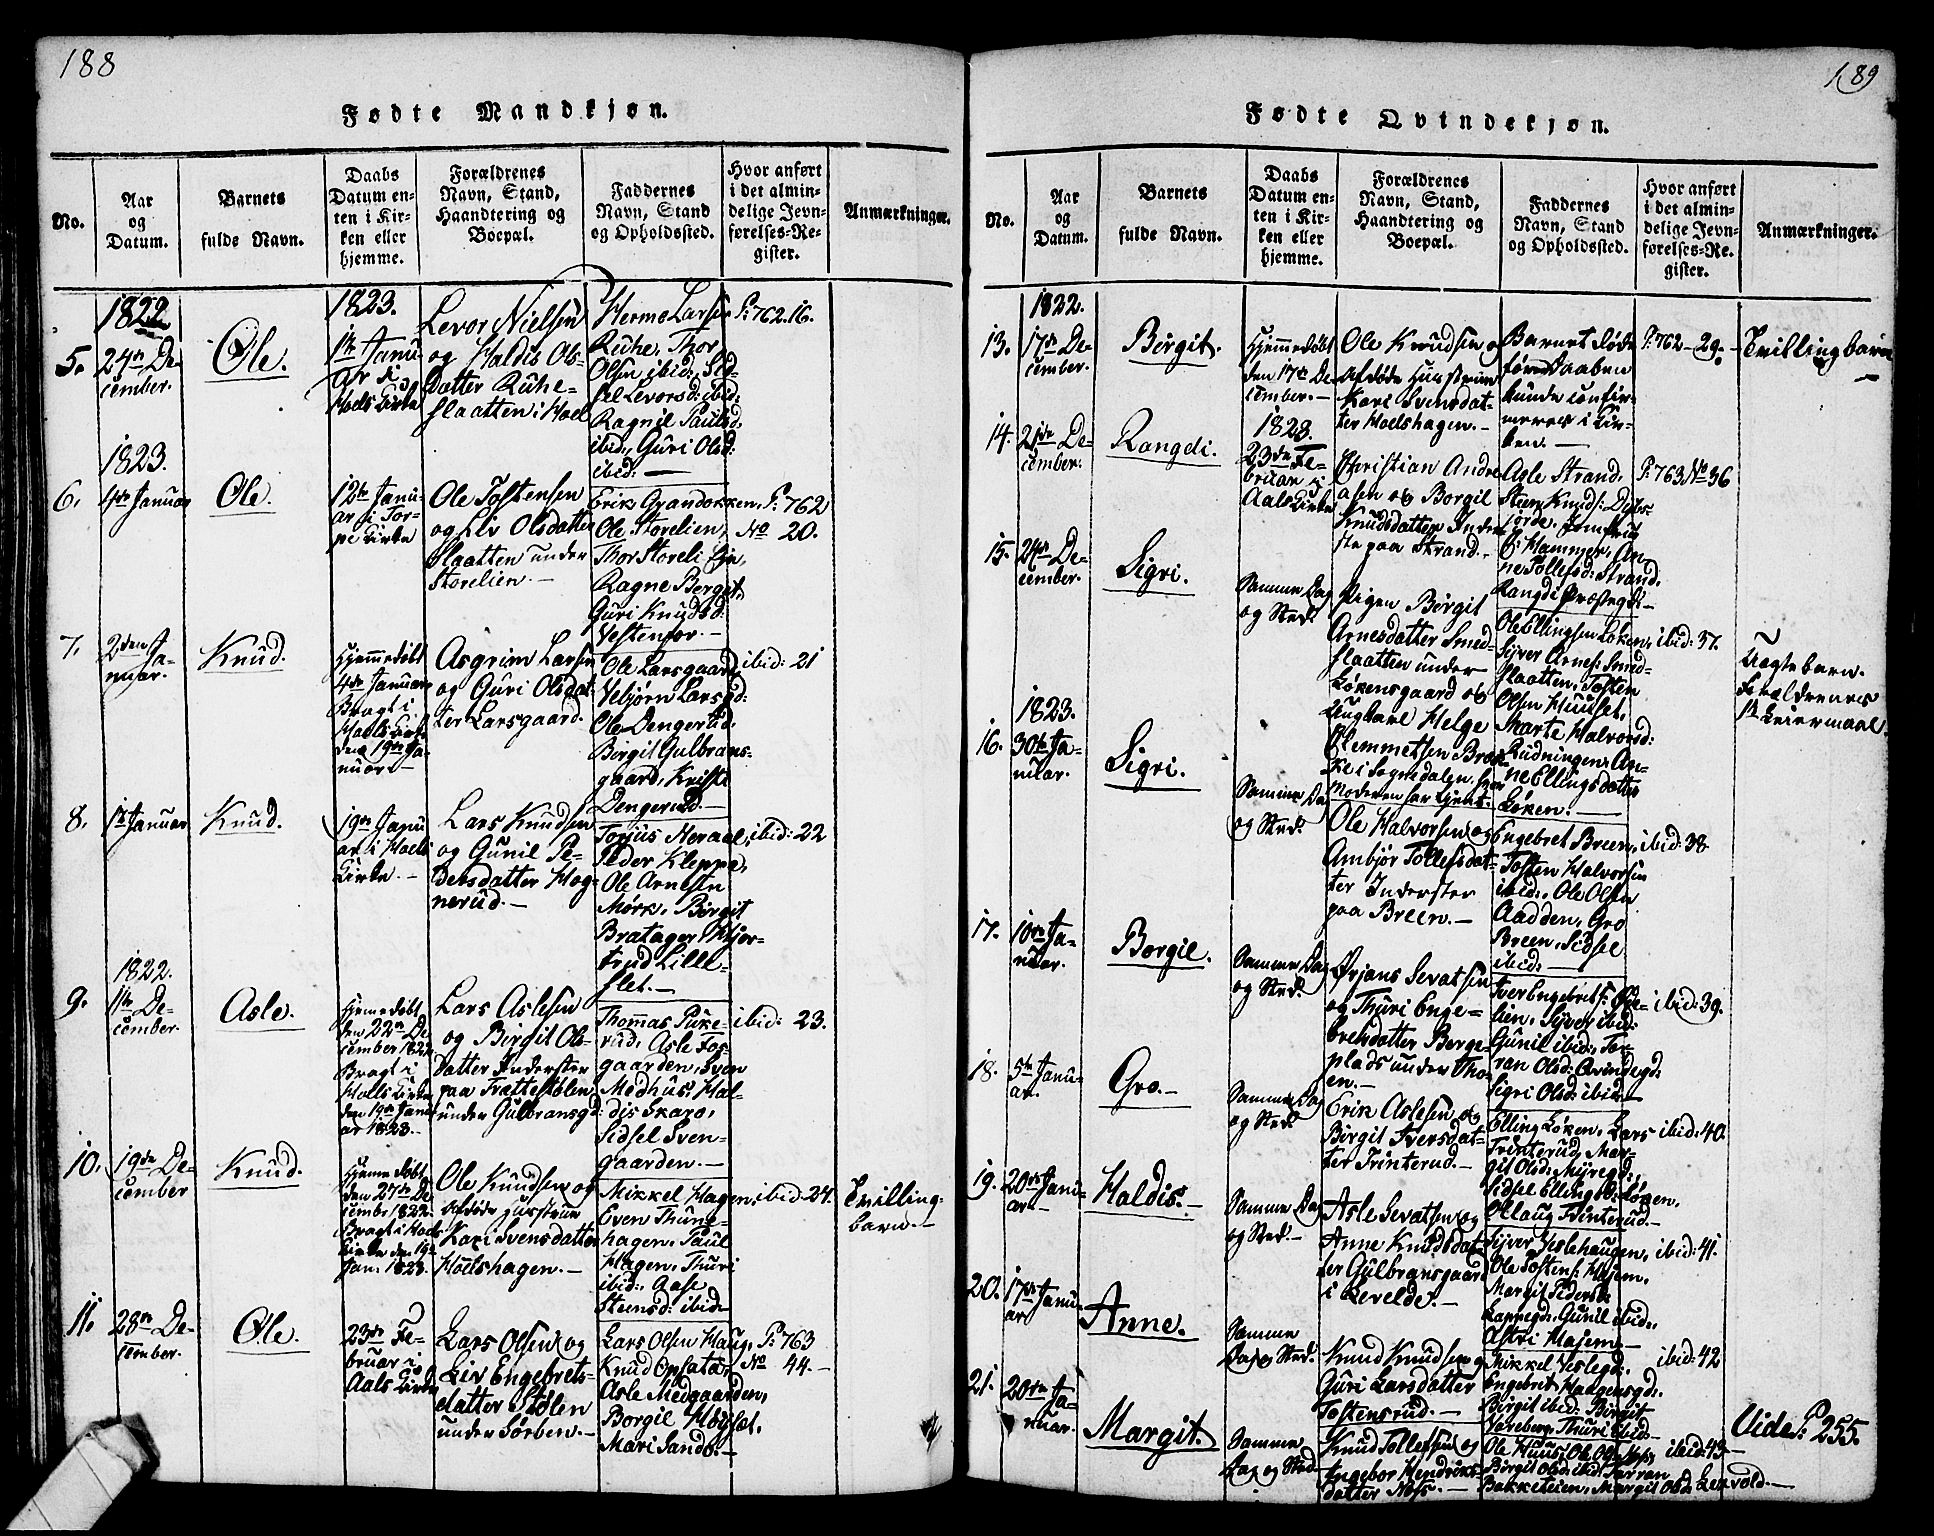 188
Fødte Mandkjøn.
No.
Aar
og
Datum.
Barnets
fulde Navn.
Daabs
Datum en-
ten i Kir-
ken eller
hjemme.
Forældrenes
Navn, Stand,
Haandtering og
Boepæl.
Faddernes
Navn, Stand
og Opholdssted.
Hvor anført
i det almin-
delige Jevn-
førelses-Re-
gister.
Anmærkninger.
1822
5.
24de De-
cember.
Ole.
1823.
1te Janu-
ar i
Hoels Kirke
Levor Nielsen
og Haldis Ols-
Datter Ruhe-
slaatten i Hoel
Herme Larsen
Ruhe, Thor
Olsen ibid:, Sid-
sel Levorsd: ibid:
Ragnil Paulsd.
ibid:, Guri Olsd:
ibid:
P: 762. 16.
1823.
6.
4de Januar
Ole.
12te Janu-
ar i Tor-
pe Kirke
Ole Tostensen
og Liv Olsdatter
Slaatten under
Storelien.
Erik Grandokken,
Ole Storelien,
Thor Storeli
Ragne Bergit,
Guri Knudsd:
Vestenfor.
P: 762
No 20.
7.
2den Ja-
nuar.
Knud.
Hjemmedøbt
4de Januar
Bragt i
Hoels Kirke
den 19de Ja-
nuar.
Asgrim Larsen
og Guri Olsdat-
ter Larsgaard.
Ole Larsgaard,
Vebjørn Larsgd:
Ole Dengerud,
Birgit Gulbrans-
gaard, Kristi
Dengerud.
ibid: 21
8.
1te Januar
Knud.
19de Janu
ar i Hoels
Kirke.
Lars Knudsen
og Gunil Pe-
dersdatter Hag-
nerud.
Torjus Heraae,
Peder Kleppe,
Ole Arnesen
Mørk, Birgit
Bratager
trud Lille-
slet.
ibid: 22
1822.
9.
11te De-
cember.
Asle.
Hjemmedøbt
den 22de De
cember 1822
Bragt i
Hoels Kirke
den 19de Janu
ar 1823.
Lars Aslesen
og Birgit Ols-
datter Inderster
paa Trættestølen
under Gulbransgd:
Thomas Puke-
rud, Asle For-
gaarden, Sven
Medhus, Hal-
dis Skaro,
Sidsel Sven-
gaarden.
ibid: 23.
10.
19de De-
cember
Knud.
Hjemmedøbt
den 27de De
cembr 1822
Bragt i Hoels
Kirke den 19de
Jan. 1823.
Ole Knudsen og
afdøde Hustrue
Kari Svensdatter
Hoelshagen.
Mikkel Hagen,
Even Thune-
hagen, Paul
Hagen, Thuri
ibid:, Aase
Steensd: ibid:
ibid: 24.
Tvilling-
barn.
11.
28de De-
cember.
Ole.
23de Fe-
bruar i
Aals Kirke
Lars Olsen og
Liv Engebrets-
datter Stølen
under Sørben.
Lars Olsen Haug,
Knud Opsata,
Asle Medgaarden,
Borgil Høysæt,
Mari Sando.
P: 763
No 44.
189
Fødte Qvindekjøn.
No.
Aar
og
Datum.
Barnets
fulde Navn.
Daabs
Datum en-
ten i Kir-
ken eller
hjemme.
Forældrenes
Navn, Stand,
Haandtering og
Boepæl.
Faddernes
Navn, Stand
og Opholdssted.
Hvor anført
i det almin-
delige Jevn-
førelses-Re-
gister.
Anmærkninger.
1822.
13.
17de De-
cember.
Birgit.
Hjemmedøbt
den 17de De-
cember.
Ole Knudsen og
afdøde Hustrue
Kari Svensdat-
ter Hoelshagen.
Barnet døde
før Daaben
kunde confir-
meres i Kir-
ken.
P: 762 - 29.
Tvillingbarn
14.
21de De-
cember.
Rangdi.
1823.
23de Fe-
bruar i
Aals Kirke
Christian Andre
asen og Borgil
Knudsdatter Inder-
ste paa Strand.
Asle Strand,
Steen Knuds:
Jomfrue
Hammer, An-
ne Tollefsd: Strand,
Rangdi Præstegd:
P: 763 No 36
15.
24de De-
cember.
Sigri.
Samme Dag
og Sted.
Pigen Birgit
Arnesdatter Smed-
slaatten under
Løkensgaard og
Ungkarl Helge
Clemmetsen
i Sognedalen, hvor
Moderen har tjent.
Ole Ellingsen Løken,
Syver Arnes: Smed-
slaatten, Tosten
Olsen Huuset,
Marte Halvorsd:
Rudningen, An-
ne Ellingsdatter
Løken.
ibid: 37.
Uægte barn.
Forældrenes
1te Leiermaal.
1823.
16.
30te Ja-
nuar.
Sigri.
Samme Dag
og Sted.
Ole Halvorsen og
Ambjør Tollefsdat-
ter Inderster
paa Breen.
Engebret Breen,
Tosten Halvorsen
ibid:, Ole Olsen
Aadden, Gro
Breen, Sidsel
ibid:
ibid: 38
17.
10de Ja-
nuar.
Borgil.
Samme Dag
og Sted.
Ørjans Sevatsen
og Thuri Enge-
bretsdatter Berge-
plads under Tho-
en.
Iver Engebrets:
lien, Syver ibid:
Gunil ibid:, Tor-
ran Olsd: Qvindegd:
Sigri Olsd: ibid:
ibid: 39.
18.
5te Janu-
ar.
Gro.
Samme Dag
og Sted.
Erik Aslesen og
Birgit Iversdat-
ter Trinterud.
Elling Løken, Lars
Trinterud, Mar-
git Olsd: Myregd:,
Sidsel Ellingsd: Løken,
Ollaug Trinterud.
ibid: 40.
19.
20de Janu-
ar
Haldis.
Samme Dag
og Sted.
Asle Sevatsen og
Anne Knudsdat-
ter Gulbransgaard
i Levelde.
Syver Veslehaugen,
Ole Tostens: Hajem,
Margit Pedersd:
gd:, Gunil ibid:,
Astri Hajem.
ibid: 41.
20.
17de Janu-
ar
Anne.
Samme
Dag og Sted.
Knud Knudsen og
Guri Larsdatter
Tostensrud.
Mikkel Veslegd:
Engebret Haagensgd:,
Birgit ibid: Birgit
Thuri ibid:
ibid: 42
21.
20de Ja-
nuar.
Margit.
Samme
Dag og Sted
Knud Tollefsen og
Ingebor Hendriks-
datter Næs.
Ole Huus, Ole Ols:
Birgit Olsd: ibid: Tarran
Bakketeien, Margit Olsd:
ibid: 43
Vide P: 255.